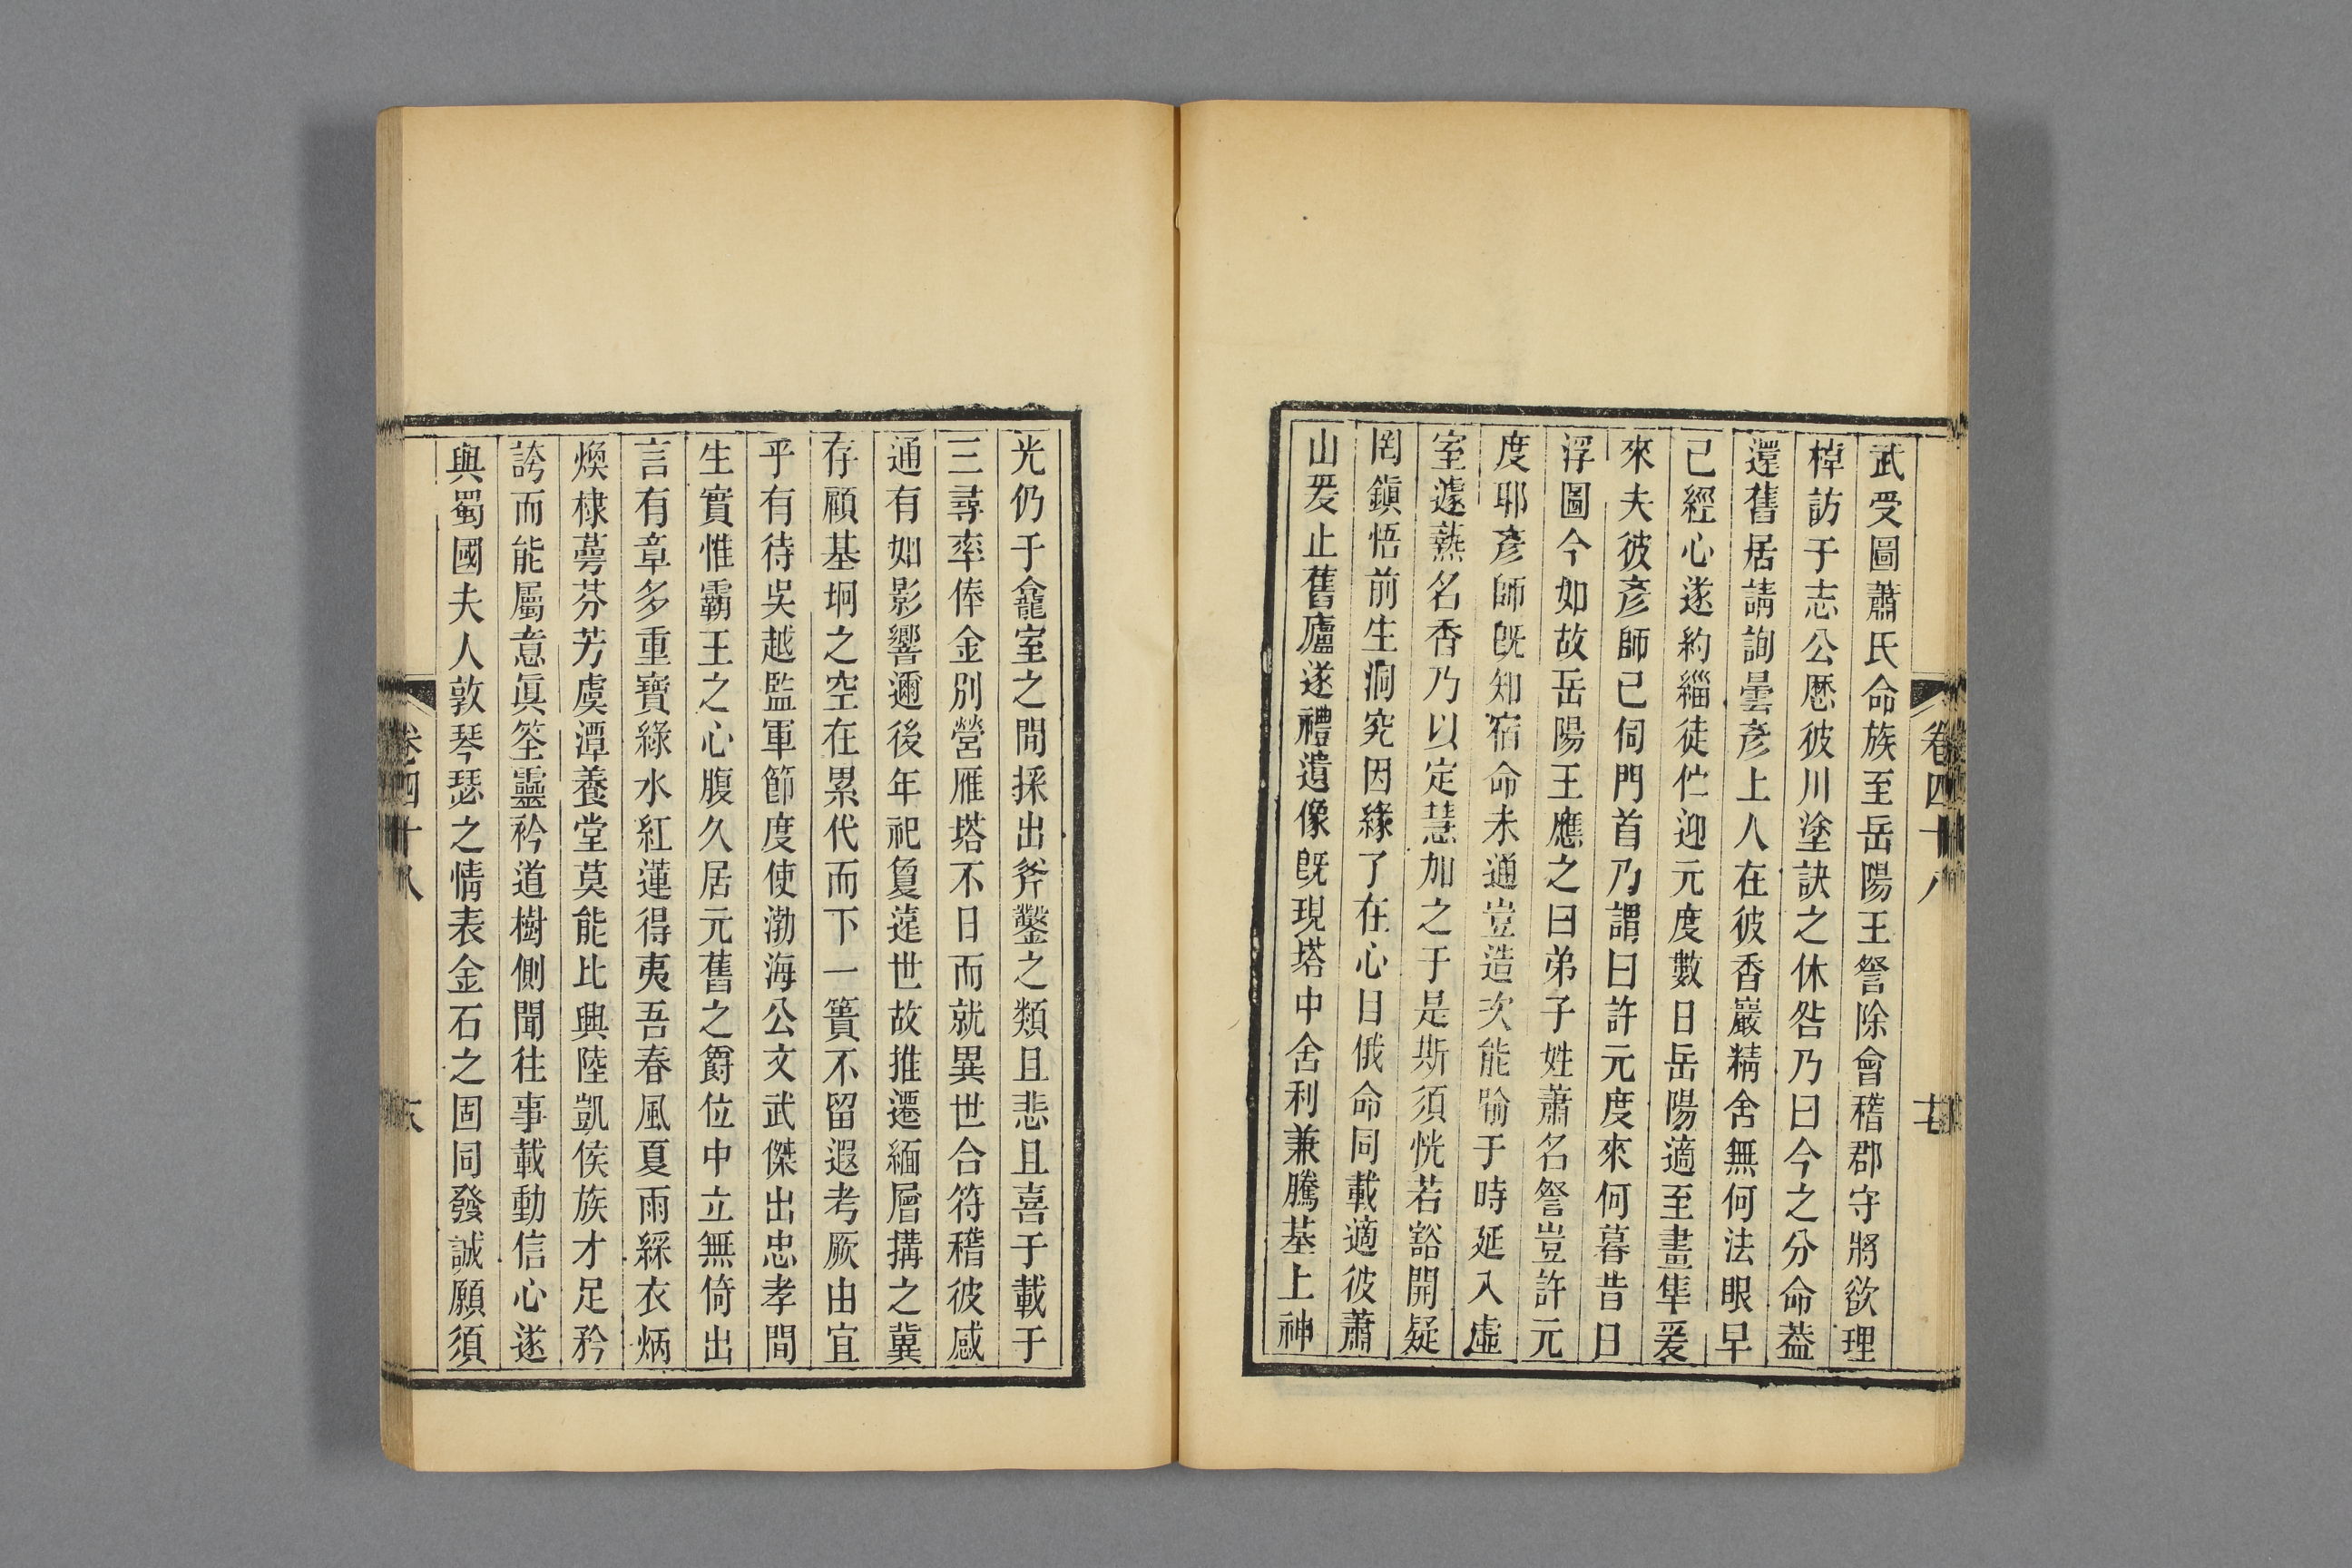 武受圖蕭氏命族至岳陽王詧除會稽郡守將欲理
棹訪于志公歷彼川塗訣之休咎乃曰今之分命葢
還舊居請詢曇彥上人在彼香巖精舍無何法眼早
已經心遂約緇徒伫迎元度數日岳陽適至畫隼爰
來夫彼彥師已伺門首乃謂曰許元度來何暮昔日
浮圖今如故岳陽王應之曰弟子姓蕭名詧豈許元
度耶彥師旣知宿命未通豈造次能喻于時延入虛
室遽爇名香乃以定慧加之于是斯須恍若豁開疑
罔鎭悟前生洞究因緣了在心目俄命同載適彼蕭
山爰止舊廬遂禮遺像旣現塔中舍利兼騰基上神
卷四十八
光仍于龕室之間採出斧鑿之類且悲且喜于載于
三尋率俸金別營雁塔不日而就異世合符稽彼感
通有如影響邇後年祀敻遠世故推遷緬層搆之冀
存顧基坰之空在累代而下一簣不留遐考厥由宜
乎有待吳越監軍節度使渤海公文武傑出忠孝間
生實惟霸王之心腹久居元舊之爵位中立無倚出
言有章多重寶綠水紅蓮得夷吾春風夏雨綵衣炳
煥棣蕚芬芳虞潭養堂莫能比興陸凱侯族才足矜
誇而能屬意眞筌靈衿道樹側聞往事載動信心遂
與蜀國夫人敦琴瑟之情表金石之固同發誠願須
卷四十八